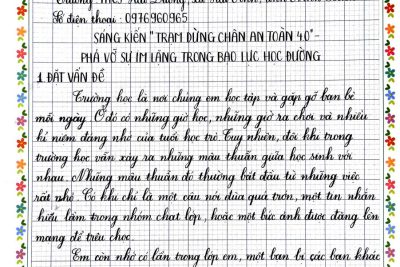 Số điện thoại : 0976960965
SÁNG KIẾN "TRẠM DỪNG CHÂN AN TOÀN 4.0" -
PHÁ VỠ SỰ IM LẶNG TRONG BẠO LỰC HỌC ĐƯỜNG
1. ĐẶT VẤN ĐỀ
Trường học là nơi chúng em học tập và gặp gỡ bạn bè
mỗi ngày. Ở đó có những giờ học, những giờ ra chơi và nhiều
kỉ niệm đáng nhớ của tuổi học trò. Tuy nhiên, đôi khi trong
trường học vẫn xảy ra những mâu thuẫn giữa học sinh với
nhau. Những mâu thuẫn đó thường bắt đầu từ những việc
rất nhỏ. Có khi chỉ là một câu nói đùa quá trớn, một tin nhắn
hiểu lầm trong nhóm chat lớp, hoặc một bức ảnh được đăng lên
mạng để trêu chọc.
Em còn nhớ có lần trong lớp em, một bạn bị các bạn khác